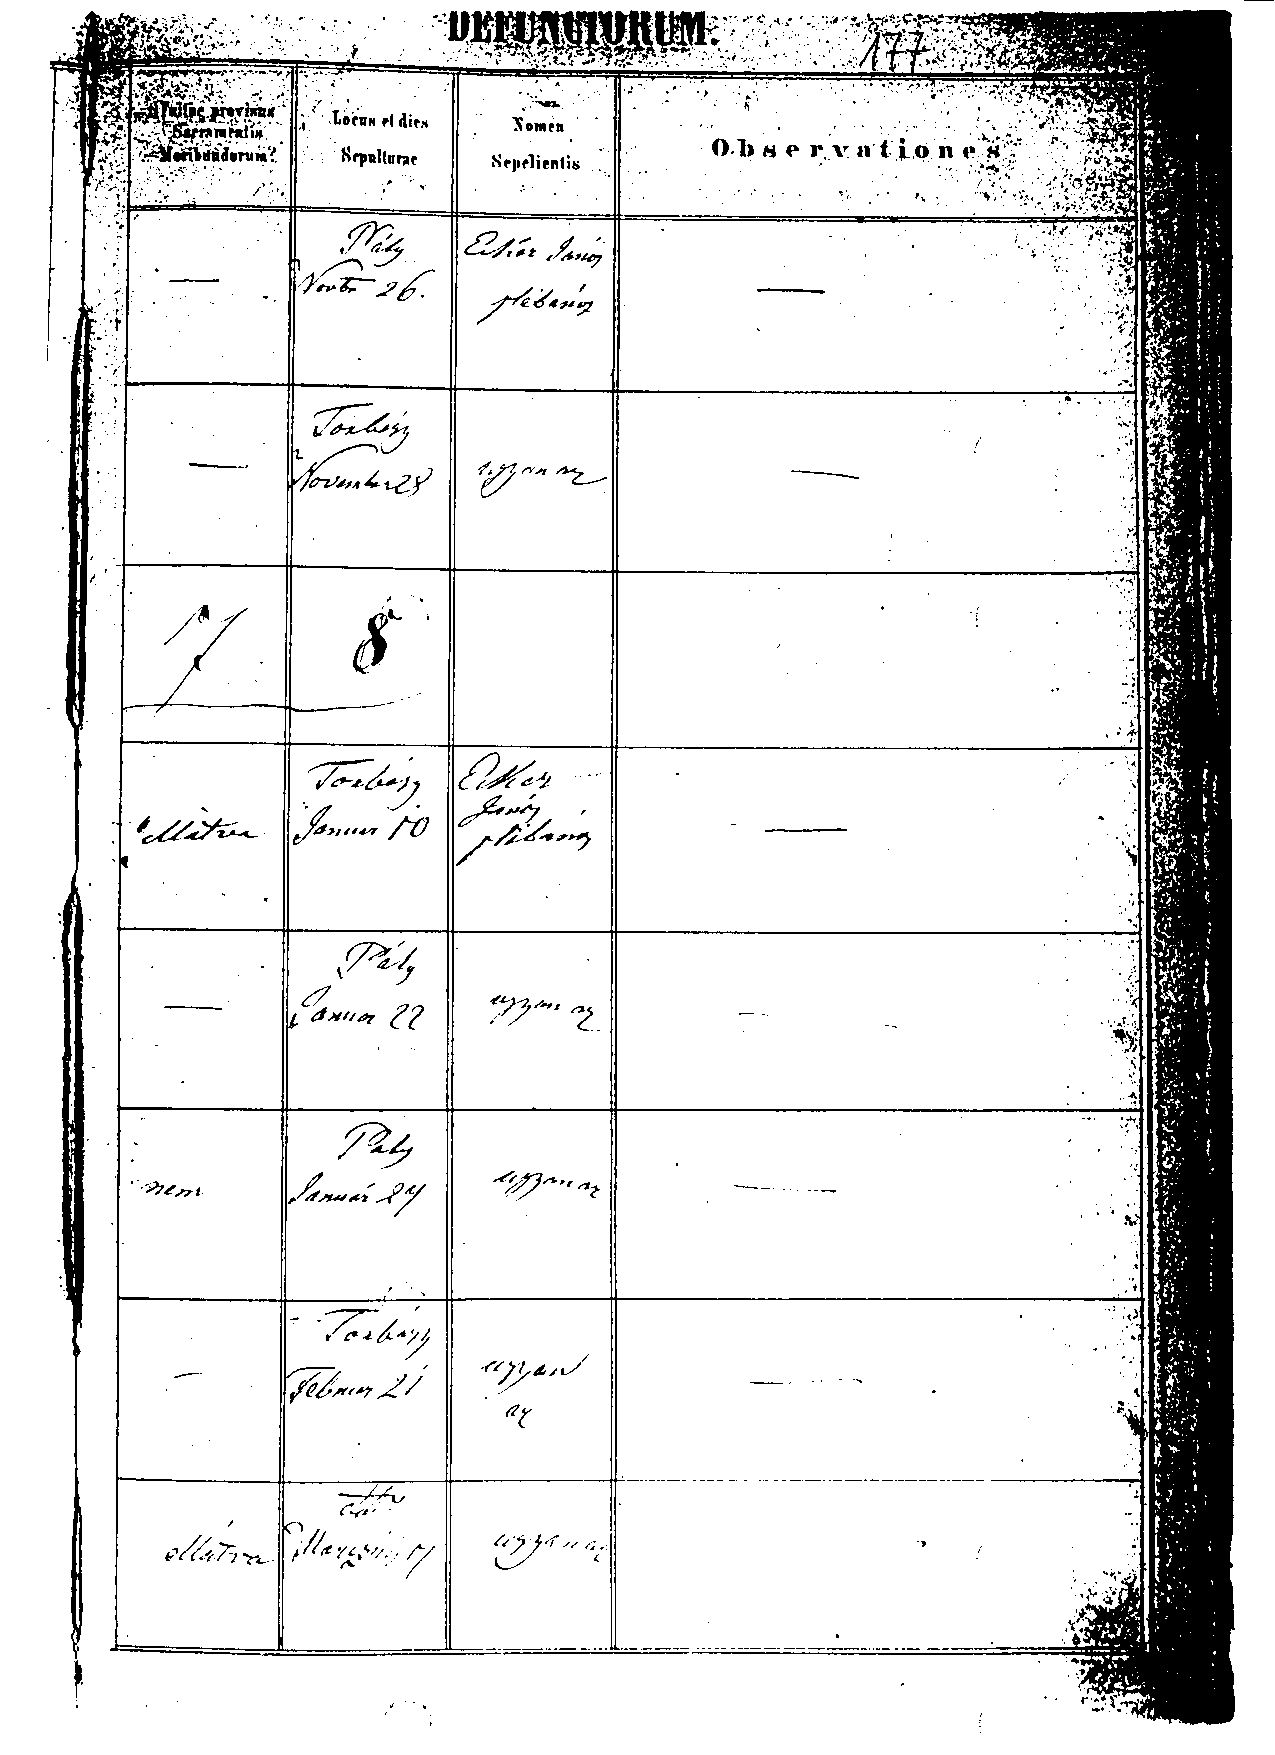 DEFUNCTORUM.
177
Fuitne provisus
Sacramentis
Moribundorum?
Locus et dies
Sepulturae
Nomen
Sepelientis
Observationes
—
Páty
Novbr 26.
János
plébános
—
—
Torbágy
November 28
ugyan az
—
7
8
Torbágy
Január 10
János
plébános
—
—
Páty
Januar 22
ugyan az
—
nem
Páty
Január 24
ugyan az
—
—
Torbágy
Februar 21
ugyan
az
—
ugyan az